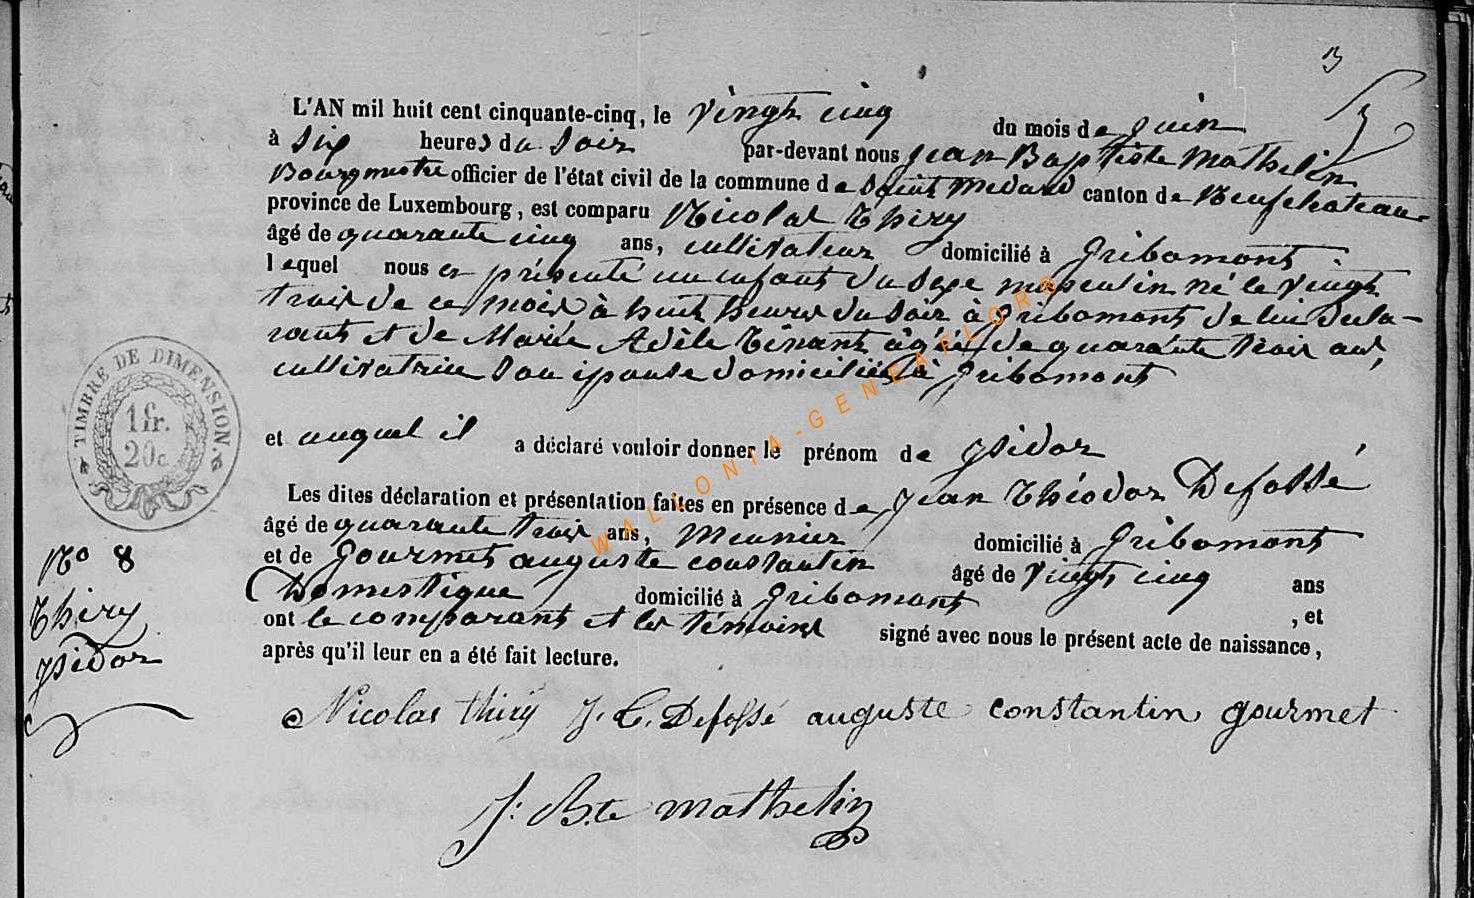 3
L'AN mil huit cent cinquante-cinq, le vingt cinq du mois de juin
à Six heures du Soir par-devant nous Jean Baptiste Mathelin
Bourgmestre officier de l'état civil de la commune de Saint Medard canton de Neufchateau
province de Luxembourg, est comparu Nicolas Thiry
âgé de quarante cinq ans, cultivateur domicilié à Gribomont
lequel nous a présenté un enfant du sexe masculin né le vingt
trois de ce mois à huit heures du Soir à Gribomont de lui decla-
rant et de Marie Adèle Tinant âgée de quarante trois ans,
cultivatrice Son épouse domiciliés à Gribomont
et auquel il a déclaré vouloir donner le prénom de Isidor
Les dites déclaration et présentation faites en présence de Jean Théodor Defossé
âgé de quarante trois ans, Meunier domicilié à Gribomont
et de Gourmet auguste constantin âgé de vingt cinq ans
Domestique domicilié à Gribomont, et
ont le comparant et les témoins signé avec nous le présent acte de naissance,
après qu'il leur en a été fait lecture.
Nicolas thiry J. T. Defossé auguste constantin gourmet
J. Bte Mathelin
TIMBRE DE DIMENSION
1 fr.
20 c.
No 8
Thiry
Isidor
WALLONIA-GENEAFLOR®